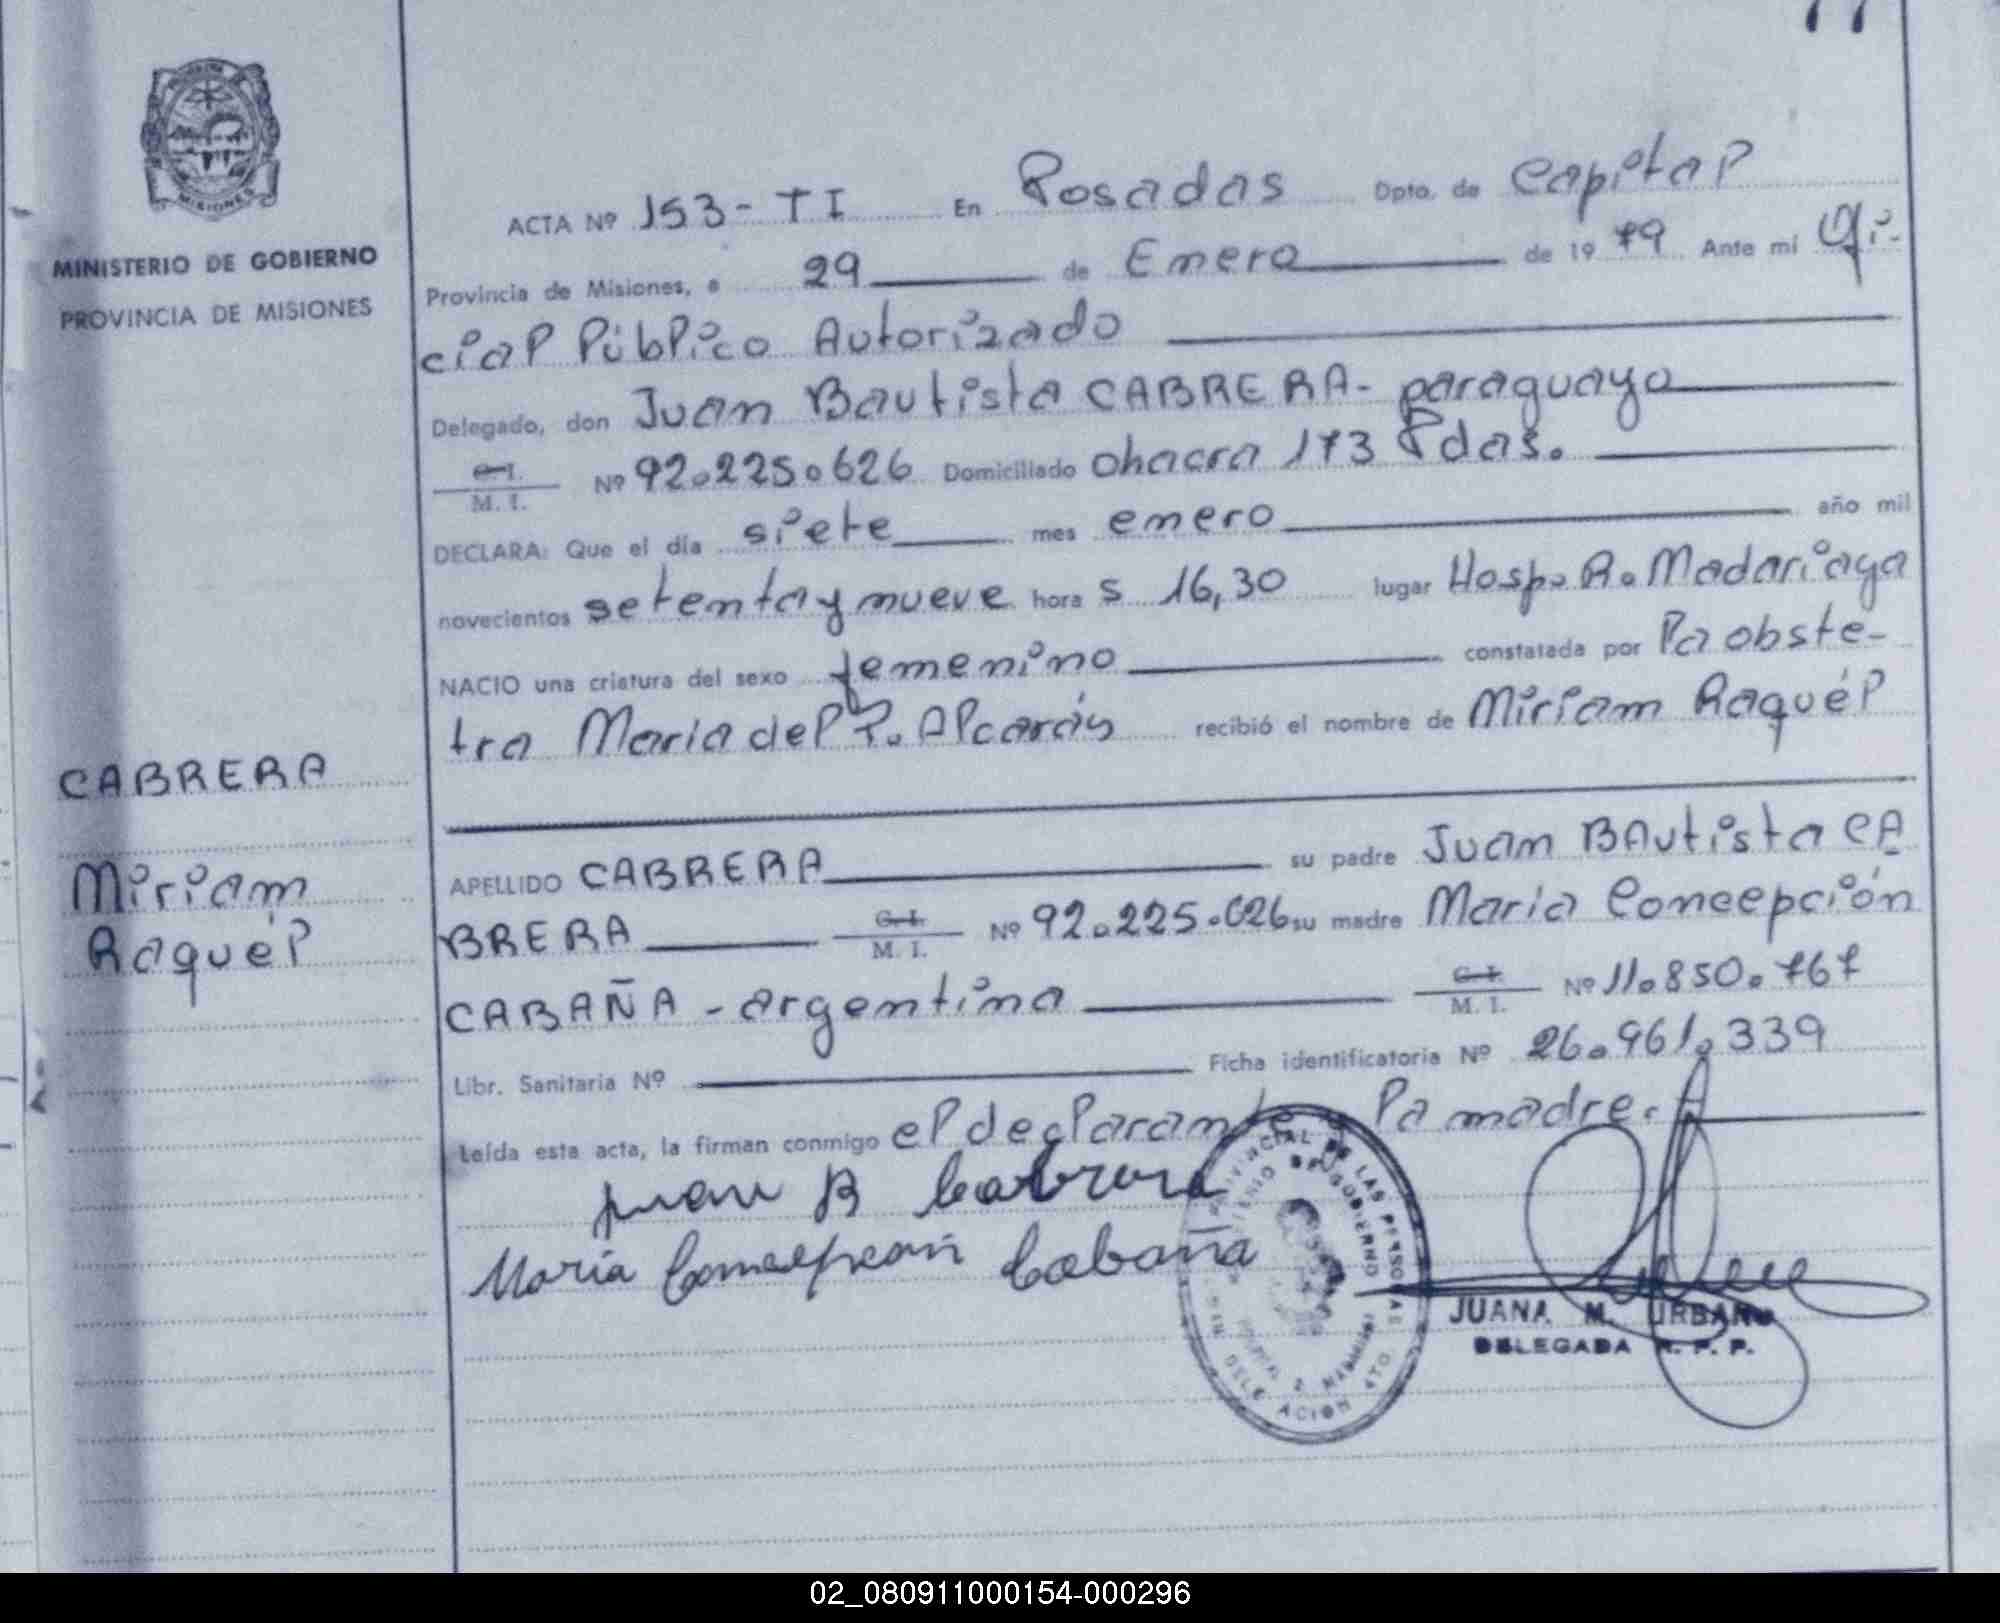 MISIONES
MINISTERIO DE GOBIERNO
PROVINCIA DE MISIONES
CABRERA
Miriam
Raquél
ACTA Nº 153-TI En Posadas Dpto. de Capital
Provincia de Misiones, a 29 de Enero de 1979 Ante mi Ofi-
cial Público Autorizado
Delegado, don Juan Bautista CABRERA- paraguayo
C.I. M. I. Nº 92.225.626 Domiciliado chacra 173 Pdas.
DECLARA: Que el día siete mes enero año mil
novecientos setenta y nueve hora s 16,30 lugar Hosp. R. Madariaga
NACIO una criatura del sexo femenino constatada por la obste-
tra Maria del R. Alcarás recibió el nombre de Miriam Raquél
APELLIDO CABRERA su padre Juan BAutista CA
BRERA C.I. M. I. Nº 92.225.626 su madre Maria Concepción
CABAÑA - argentina C.I. M. I. Nº 11.850.767
Libr. Sanitaria Nº Ficha identificatoria Nº 26.961.339
Leída esta acta, la firman conmigo el declarante y la madre.
Juan B Cabrera
Maria Concepción Cabaña
JUANA M. URBANO
DELEGADA R. P. P.
02_080911000154-000296